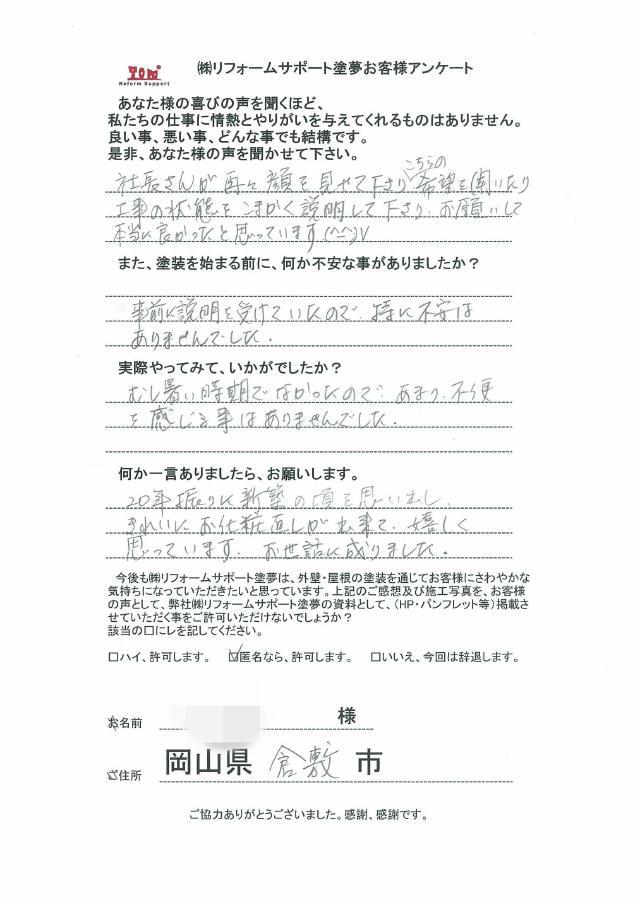 TOM
Reform Support
㈱リフォームサポート塗夢お客様アンケート
あなた様の喜びの声を聞くほど、
私たちの仕事に情熱とやりがいを与えてくれるものはありません。
良い事、悪い事、どんな事でも結構です。
是非、あなた様の声を聞かせて下さい。
社長さんが再々顔を見せて下さりこちらの希望を聞いたり
工事の状態をこまかく説明して下さり、お願いして
本当に良かったと思っています(^ニ^)V
また、塗装を始まる前に、何か不安な事がありましたか？
事前に説明を受けていたので、特に不安は
ありませんでした。
実際やってみて、いかがでしたか？
むし暑い時期でなかったので、あまり、不便
を感じる事はありませんでした。
何か一言ありましたら、お願いします。
20年振りに新築の頃を思い出し、
きれいにお化粧直しが出来て、嬉しく
思っています。お世話に成りました。
今後も㈱リフォームサポート塗夢は、外壁・屋根の塗装を通じてお客様にさわやかな
気持ちになっていただきたいと思っています。上記のご感想及び施工写真を、お客様
の声として、弊社㈱リフォームサポート塗夢の資料として、（HP・パンフレット等）掲載さ
せていただく事をご許可いただけないでしょうか？
該当の□にレを記してください。
□ハイ、許可します。 ☑匿名なら、許可します。 □いいえ、今回は辞退します。
お名前 様
ご住所 岡山県 倉敷 市
ご協力ありがとうございました。感謝、感謝です。